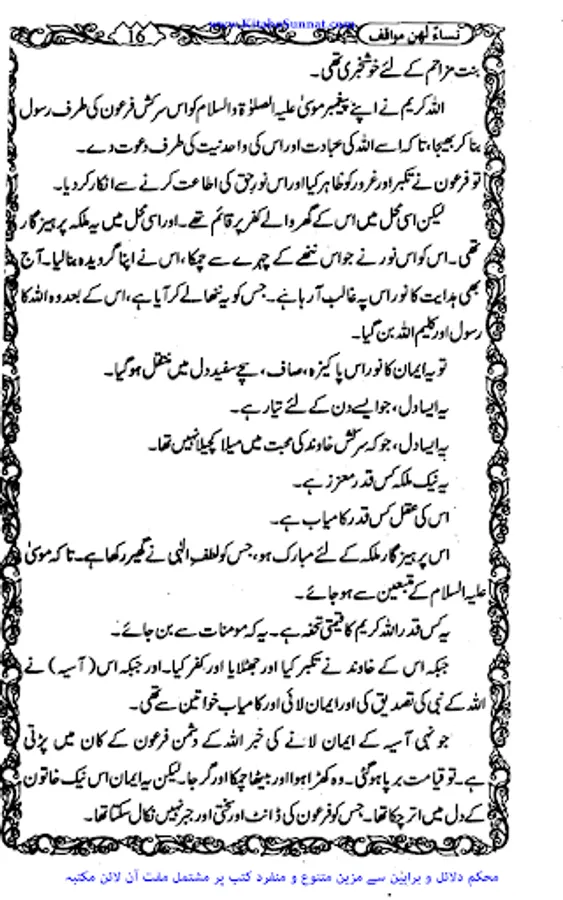 www.KitaboSunnat.com
نساءٌ لهن مواقف
16
بنت مزاحم کے لئے خوشخبری تھی۔
اللہ کریم نے اپنے پیغمبر موسیٰ علیہ الصلوٰۃ والسلام کو اس سرکش فرعون کی طرف رسول
بنا کر بھیجا، تا کہ اسے اللہ کی عبادت اور اس کی واحدنیت کی طرف دعوت دے۔
تو فرعون نے تکبر اور غرور کو ظاہر کیا اور اس نور حق کی اطاعت کرنے سے انکار کر دیا۔
لیکن اسی محل میں اس کے گھر والے کفر پر قائم تھے۔ اور اسی محل میں یہ ملکہ پرہیز گار
تھی۔ اس کو اس نور نے جو اس ننھے کے چہرے سے چمکا، اس نے اپنا گرویدہ بنالیا۔ آج
بھی ہدایت کا نور اس پہ غالب آ رہا ہے۔ جس کو یہ ننھا لے کر آیا ہے، اس کے بعد وہ اللہ کا
رسول اور کلیم اللہ بن گیا۔
تو یہ ایمان کا نور اس پاکیزہ، صاف، سچے سفید دل میں منتقل ہو گیا۔
یہ ایسا دل، جو ایسے دن کے لئے تیار ہے۔
یہ ایسا دل، جو کہ سرکش خاوند کی محبت میں میلا کچیلا نہیں تھا۔
یہ نیک ملکہ کس قدر معزز ہے۔
اس کی عقل کس قدر کامیاب ہے۔
اس پرہیز گار ملکہ کے لئے مبارک ہو، جس کو لطف الٰہی نے گھیر رکھا ہے۔ تا کہ موسیٰ
علیہ السلام کے متبعین سے ہو جائے۔
یہ کس قدر اللہ کریم کا قیمتی تحفہ ہے۔ یہ کہ مومنات سے بن جائے۔
جبکہ اس کے خاوند نے تکبر کیا اور جھٹلایا اور کفر کیا۔ اور جبکہ اس (آسیہ) نے
اللہ کے نبی کی تصدیق کی اور ایمان لائی اور کامیاب خواتین سے تھی۔
جونہی آسیہ کے ایمان لانے کی خبر اللہ کے دشمن فرعون کے کان میں پڑتی
ہے۔ تو قیامت برپا ہو گئی۔ وہ کھڑا ہوا اور بیٹھا چمکا اور گرجا۔ لیکن یہ ایمان اس نیک خاتون
کے دل میں اتر چکا تھا۔ جس کو فرعون کی ڈانٹ اور سختی اور جبر نہیں نکال سکتا تھا۔
محکم دلائل و براہین سے مزین متنوع و منفرد کتب پر مشتمل مفت آن لائن مکتبہ